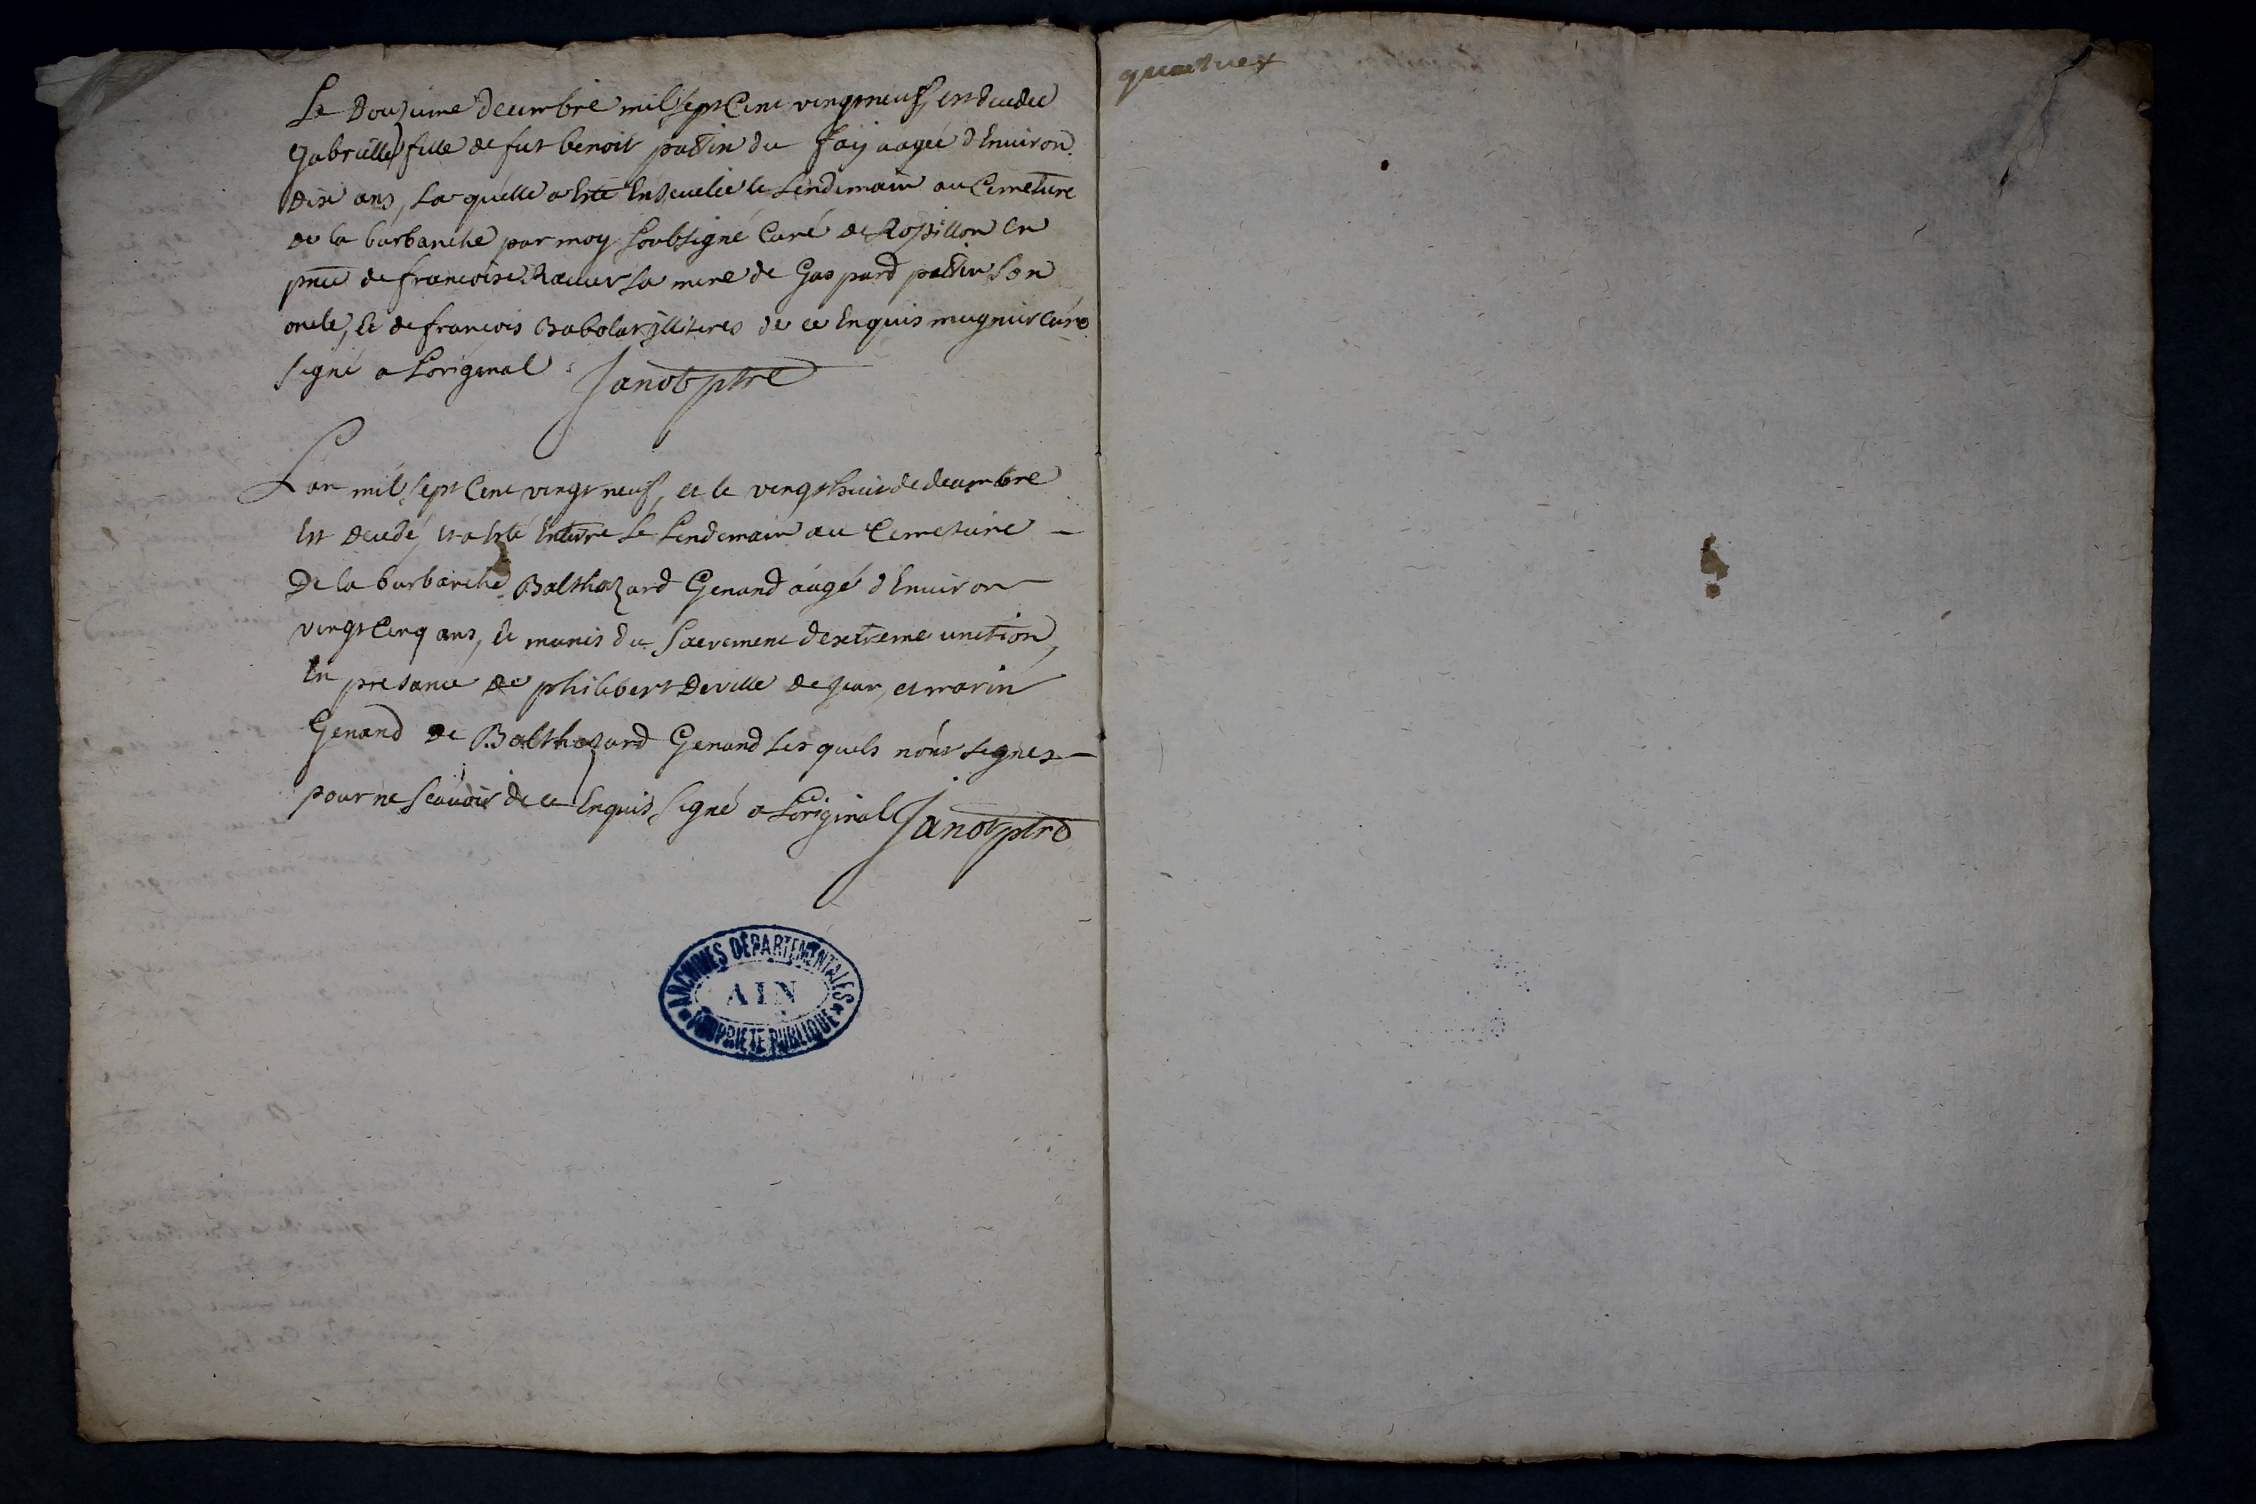 Le Douzieme decembre mil sept Cent vingt neuf, est decedee
Gabrielle fille de fut benoit pattin du faij aagée d'Environ
Dix ans, Laquelle a Esté Ensevelie le Lendemain au Cemetiere
de la burbanche par moy soubsigné Curé de Rossillon En
pnce de francoise Racur sa mere de Gaspard pattin son
oncle, Et de francois Babolat illiteres de ce Enquis mugnier Curé
signé a Loriginal Janot ptre
Lan mil sept Cent vingt neuf, et le vingt huit de decembre
Est decedé, et a Esté Enterre Le Lendemain au Cemetiere
De la burbanche Balthazard Genand aagé d'Environ
vingt Cinq ans, Et munis du Sacrement d'extreme unction,
En presance de philibert Deville de , et marin
Genand de Balthazard Genand Lesquels n'ont signes
pour ne scavoir de ce Enquis signé a Loriginal Janot ptre
ARCHIVES DÉPARTEMENTALES
AIN
PROPRIÉTÉ PUBLIQUE